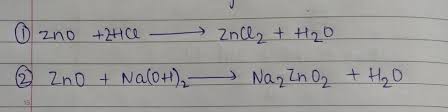 ① ZnO + 2HCl ⟶ ZnCl₂ + H₂O
② ZnO + Na(OH)₂ ⟶ Na₂ZnO₂ + H₂O